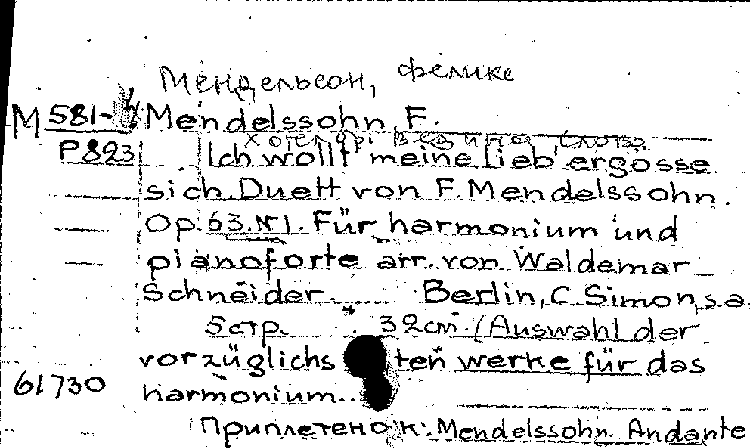 Мендельсон, Феликс
М 581- Mendelssohn, F.
Хотел бы в единое слово
P823 Ich wollt' meine Lieb' ergosse
sich. Duett von F. Mendelssohn.
Op. 63. №1. Für harmonium und
pianoforte arr. von Waldemar
Schneider. Berlin, C. Simon, s.a.
5 стр. 32 см. (Auswahl der
vorzüglichsten werke für das
61730 harmonium...
Приплетено к: Mendelssohn. Andante